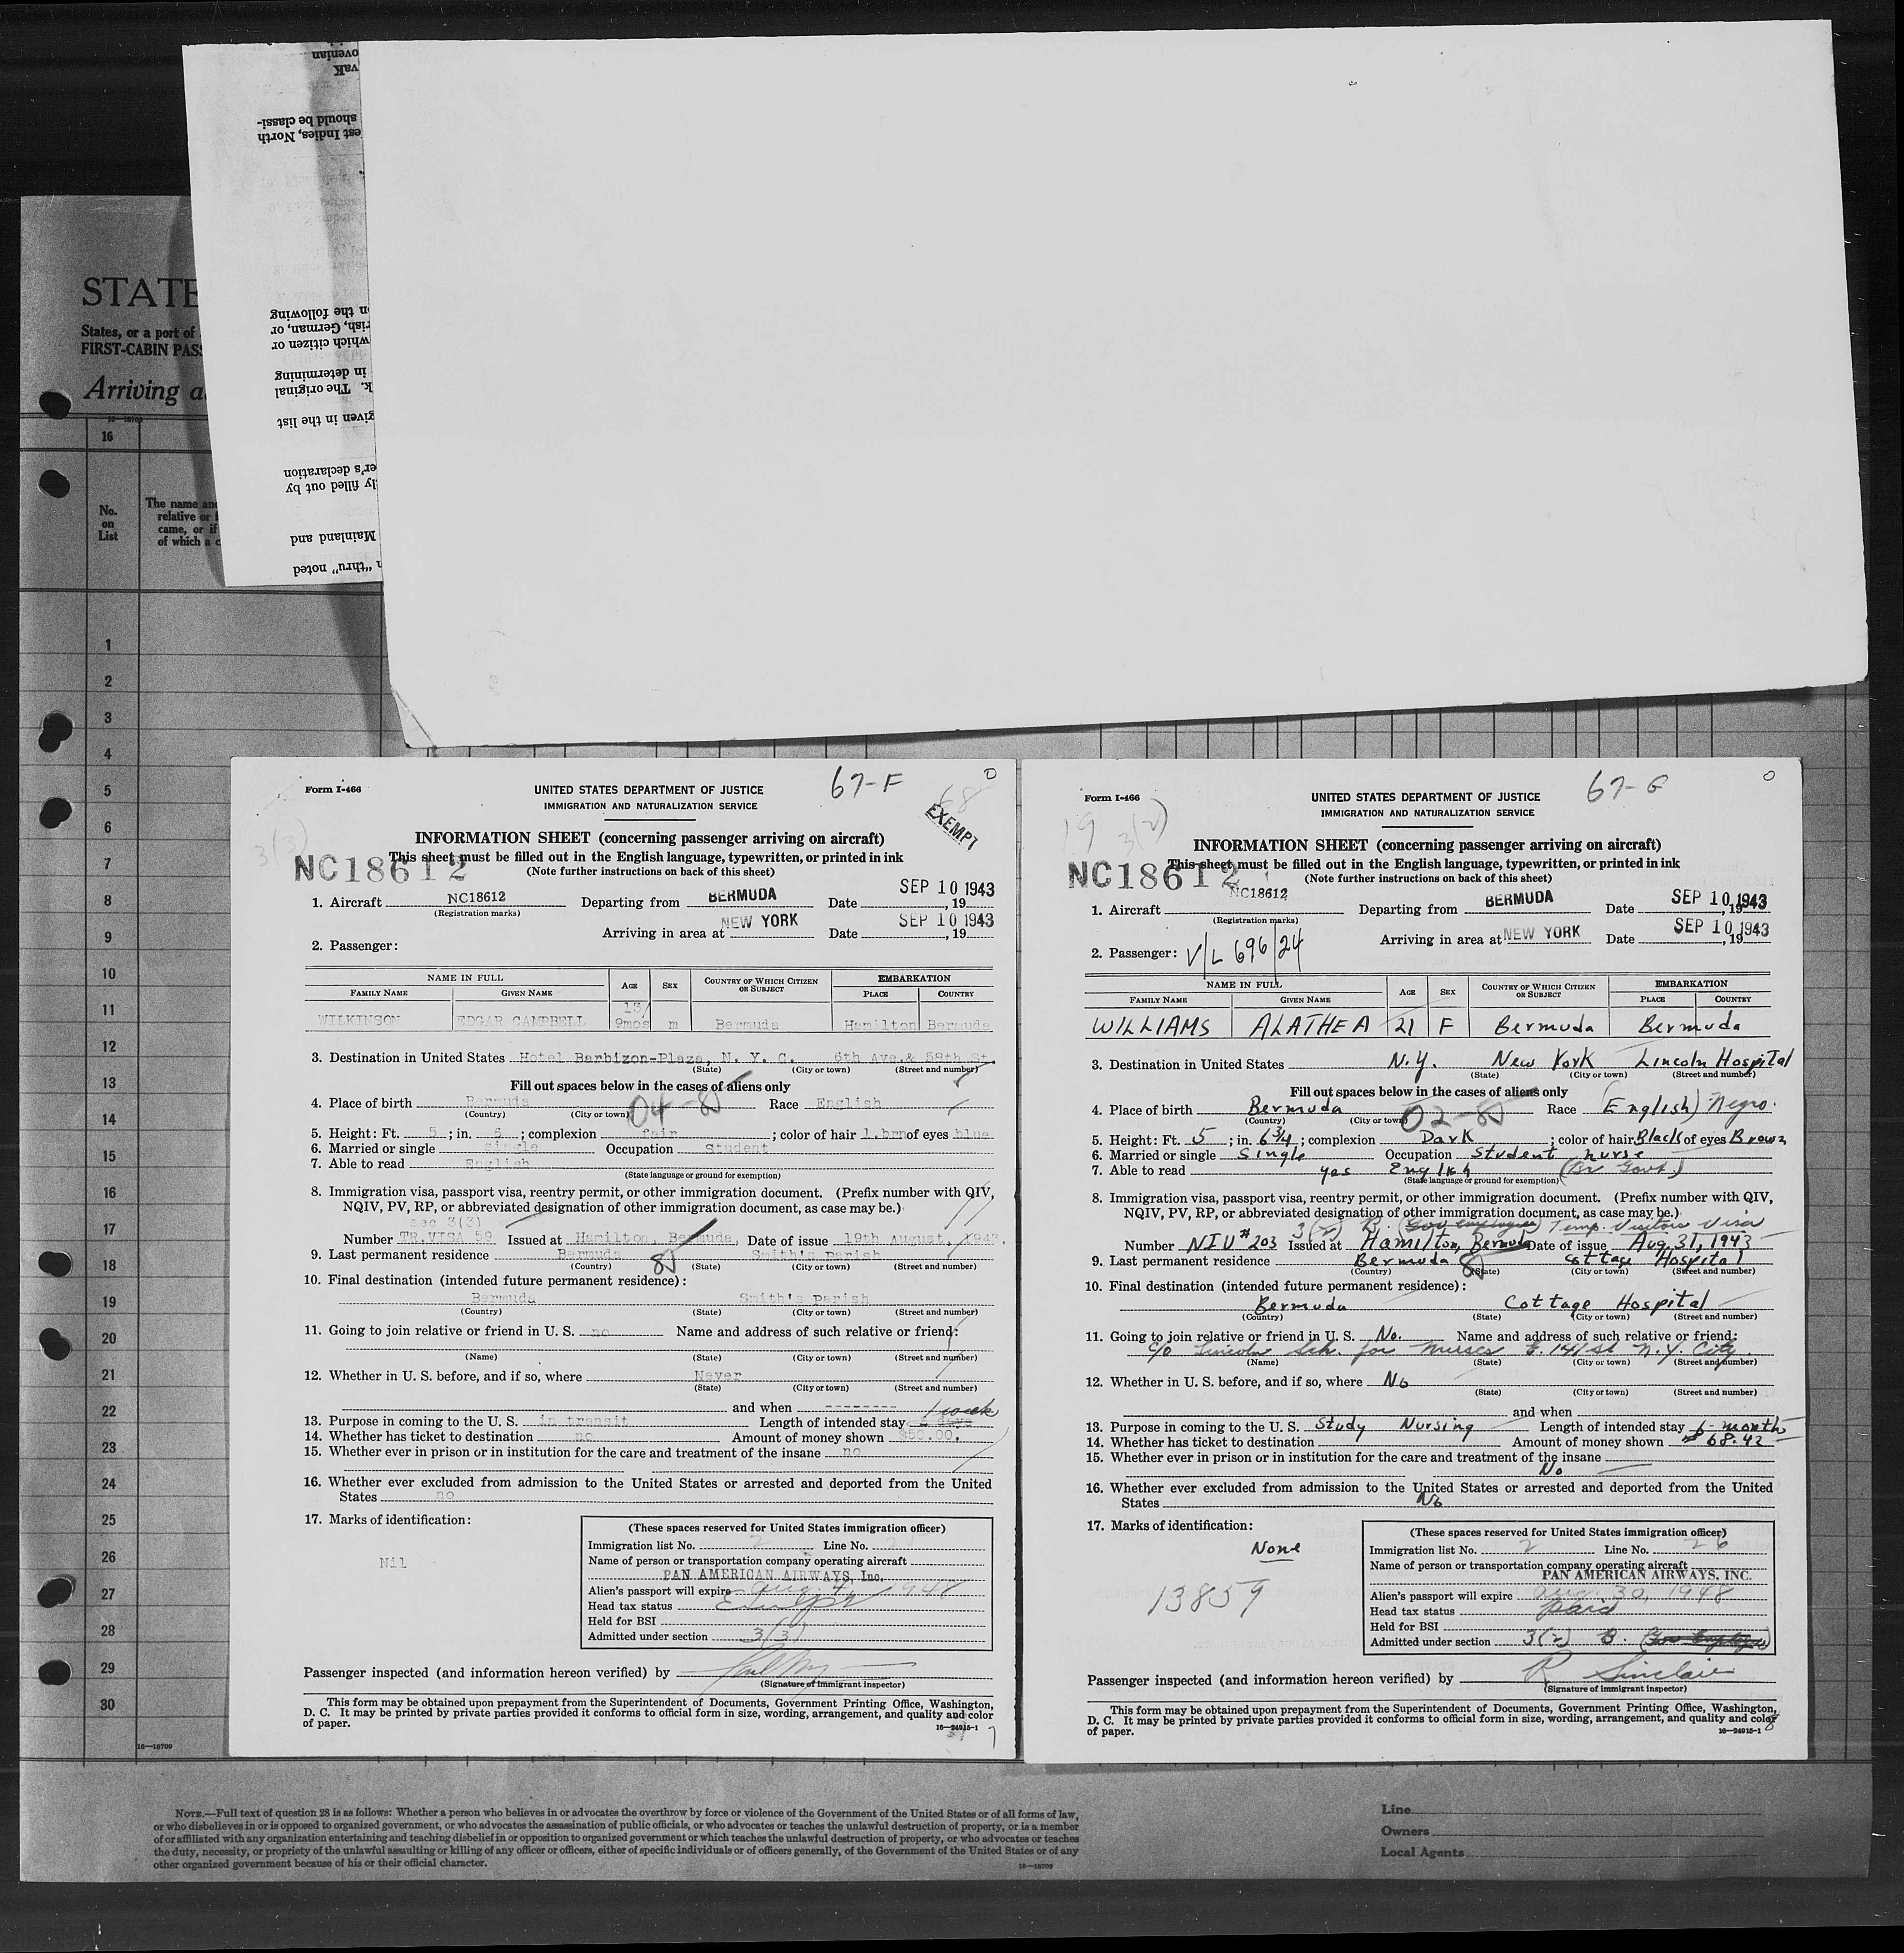 ovenian
vak
should be classi-
est Indies, North
n the following
rish, German, or
which citizen or
in determining
k. The original
given in the list
er's declaration
ly filled out by
Mainland and
"thru" noted
STATE
States, or a port of
FIRST-CABIN PAS
Arriving a
16—18709
16
No.
on
List
The name and
relative or
came, or if
of which a c
1
2
3
4
5
6
7
8
9
10
11
12
13
14
15
16
17
18
19
20
21
22
23
24
25
26
27
28
29
30
16—18709
Form I-466
67-F
68
EXEMPT
3(3)
UNITED STATES DEPARTMENT OF JUSTICE
IMMIGRATION AND NATURALIZATION SERVICE
INFORMATION SHEET (concerning passenger arriving on aircraft)
This sheet must be filled out in the English language, typewritten, or printed in ink
NC18612
(Note further instructions on back of this sheet)
1. Aircraft NC18612 Departing from BERMUDA Date SEP 10 1943, 19
(Registration marks)
Arriving in area at NEW YORK Date SEP 10 1943, 19
2. Passenger:
NAME IN FULL AGE SEX COUNTRY OF WHICH CITIZEN OR SUBJECT EMBARKATION
FAMILY NAME GIVEN NAME PLACE COUNTRY
WILKINSON EDGAR CAMPBELL 13/ 9mos m Bermuda Hamilton Bermuda
3. Destination in United States Hotel Barbizon-Plaza, N. Y. C. 6th Ave.& 58th St.
(State) (City or town) (Street and number)
Fill out spaces below in the cases of aliens only
4. Place of birth Bermuda 04-8 Race English
(Country) (City or town)
5. Height: Ft. 5; in. 6; complexion fair; color of hair l.brn of eyes blue
6. Married or single single Occupation Student
7. Able to read English
(State language or ground for exemption)
8. Immigration visa, passport visa, reentry permit, or other immigration document. (Prefix number with QIV,
NQIV, PV, RP, or abbreviated designation of other immigration document, as case may be.)
sec 3(3)
Number TR.VISA 59 Issued at Hamilton, Bermuda, Date of issue 19th August, 1943.
9. Last permanent residence Bermuda Smith's Parish
(Country) (State) (City or town) (Street and number)
10. Final destination (intended future permanent residence):
Bermuda Smith's Parish
(Country) (State) (City or town) (Street and number)
11. Going to join relative or friend in U. S. no Name and address of such relative or friend:
(Name) (State) (City or town) (Street and number)
12. Whether in U. S. before, and if so, where Never
(State) (City or town) (Street and number)
and when --------
13. Purpose in coming to the U. S. in transit Length of intended stay 1 week
14. Whether has ticket to destination no Amount of money shown $50.00.
15. Whether ever in prison or in institution for the care and treatment of the insane no
16. Whether ever excluded from admission to the United States or arrested and deported from the United
States no
17. Marks of identification:
Nil
(These spaces reserved for United States immigration officer)
Immigration list No. 2 Line No.
Name of person or transportation company operating aircraft
PAN AMERICAN AIRWAYS, Inc.
Alien's passport will expire Aug. 4, 1948
Head tax status
Held for BSI
Admitted under section 3(3)
Passenger inspected (and information hereon verified) by
(Signature of immigrant inspector)
This form may be obtained upon prepayment from the Superintendent of Documents, Government Printing Office, Washington,
D. C. It may be printed by private parties provided it conforms to official form in size, wording, arrangement, and quality and color
of paper.
16—24915-1
7
Form I-466
67-G
19 3(2)
UNITED STATES DEPARTMENT OF JUSTICE
IMMIGRATION AND NATURALIZATION SERVICE
INFORMATION SHEET (concerning passenger arriving on aircraft)
This sheet must be filled out in the English language, typewritten, or printed in ink
NC18612
(Note further instructions on back of this sheet)
1. Aircraft NC18612 Departing from BERMUDA Date SEP 10 1943, 19
(Registration marks)
Arriving in area at NEW YORK Date SEP 10 1943, 19
2. Passenger: V/L 696/24
NAME IN FULL AGE SEX COUNTRY OF WHICH CITIZEN OR SUBJECT EMBARKATION
FAMILY NAME GIVEN NAME PLACE COUNTRY
WILLIAMS ALATHEA 21 F Bermuda Bermuda
3. Destination in United States N.Y. New York Lincoln Hospital
(State) (City or town) (Street and number)
Fill out spaces below in the cases of aliens only
4. Place of birth Bermuda 02-8 Race (English) Negro.
(Country) (City or town)
5. Height: Ft. 5; in. 6 3/4; complexion Dark; color of hair Black of eyes Brown
6. Married or single Single Occupation Student nurse
7. Able to read yes English (Br Govt.)
(State language or ground for exemption)
8. Immigration visa, passport visa, reentry permit, or other immigration document. (Prefix number with QIV,
NQIV, PV, RP, or abbreviated designation of other immigration document, as case may be.)
3(2) B. (Gov employee) Temp. Visitors Visa
Number NIV #203 Issued at Hamilton, Bermuda Date of issue Aug 31, 1943
9. Last permanent residence Bermuda Cottage Hospital
(Country) (State) (City or town) (Street and number)
10. Final destination (intended future permanent residence):
Bermuda Cottage Hospital
(Country) (State) (City or town) (Street and number)
11. Going to join relative or friend in U. S. No. Name and address of such relative or friend:
c/o Lincoln Sch. for Nurses E. 141 St N.Y. City.
(Name) (State) (City or town) (Street and number)
12. Whether in U. S. before, and if so, where No
(State) (City or town) (Street and number)
and when
13. Purpose in coming to the U. S. Study Nursing Length of intended stay 6-months
14. Whether has ticket to destination Amount of money shown $68.42
15. Whether ever in prison or in institution for the care and treatment of the insane
No
16. Whether ever excluded from admission to the United States or arrested and deported from the United
States No
17. Marks of identification:
None
13859
(These spaces reserved for United States immigration officer)
Immigration list No. 2 Line No. 26
Name of person or transportation company operating aircraft
PAN AMERICAN AIRWAYS, INC.
Alien's passport will expire Aug. 30, 1948
Head tax status paid
Held for BSI
Admitted under section 3(2) B. (Gov Employee)
Passenger inspected (and information hereon verified) by R Sinclair
(Signature of immigrant inspector)
This form may be obtained upon prepayment from the Superintendent of Documents, Government Printing Office, Washington,
D. C. It may be printed by private parties provided it conforms to official form in size, wording, arrangement, and quality and color
of paper.
16—24915-1
8
NOTE.—Full text of question 28 is as follows: Whether a person who believes in or advocates the overthrow by force or violence of the Government of the United States or of all forms of law,
or who disbelieves in or is opposed to organized government, or who advocates the assassination of public officials, or who advocates or teaches the unlawful destruction of property, or is a member
of or affiliated with any organization entertaining and teaching disbelief in or opposition to organized government or which teaches the unlawful destruction of property, or who advocates or teaches
the duty, necessity, or propriety of the unlawful assaulting or killing of any officer or officers, either of specific individuals or of officers generally, of the Government of the United States or of any
other organized government because of his or their official character.
16—18709
Line
Owners
Local Agents